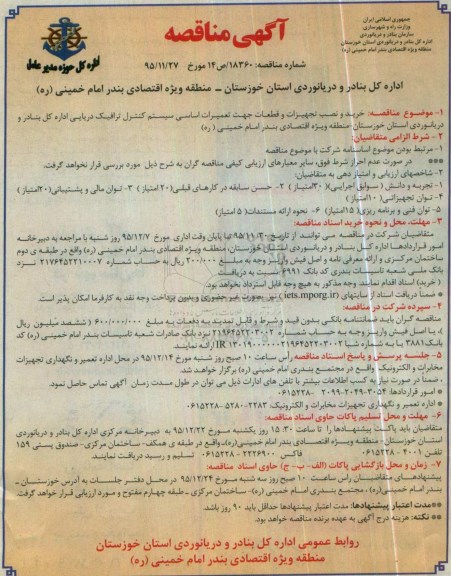 جمهوری اسلامی ایران
وزارت راه و شهرسازی
سازمان بنادر و دریانوردی
اداره کل بنادر و دریانوردی استان خوزستان
منطقه ویژه اقتصادی بندر امام خمینی (ره)
آگهی مناقصه
اداره کل حوزه مدیر عامل
شماره مناقصه: ۱۸۳۶۰/ص۱۴ مورخ ۹۵/۱۱/۲۷
اداره کل بنادر و دریانوردی استان خوزستان – منطقه ویژه اقتصادی بندر امام خمینی (ره)
۱- موضوع مناقصه: خرید و نصب تجهیزات و قطعات جهت تعمیرات اساسی سیستم کنترل ترافیک دریایی اداره کل بنادر و
دریانوردی استان خوزستان- منطقه ویژه اقتصادی بندر امام خمینی (ره)
۲- شرط الزامی متقاضیان:
۱- مرتبط بودن موضوع اساسنامه شرکت با موضوع مناقصه
*** در صورت عدم احراز شرط فوق، سایر معیارهای ارزیابی کیفی مناقصه گران به شرح ذیل مورد بررسی قرار نخواهد گرفت.
۲- شاخصهای ارزیابی و امتیاز دهی به متقاضیان:
۱- تجربه و دانش ( سوابق اجرایی)( ۳۰امتیاز ) ۲- حسن سابقه در کارهای قبلی(۲۰ امتیاز ) ۳- توان مالی و پشتیبانی(۲۰امتیاز )
۴- توان تجهیزاتی(۱۰ امتیاز)
۵- توان فنی و برنامه ریزی( ۱۵امتیاز) ۶- نحوه ارائه مستندات( ۵ امتیاز)
۳- مهلت، محل و نحوه خرید اسناد مناقصه:
متقاضیان شرکت در مناقصه می توانند از تاریخ ۹۵/۱۱/۳۰ تا پایان وقت اداری مورخ ۹۵/۱۲/۷ روز شنبه با مراجعه به دبیرخانه
امور قراردادها اداره کل بنادر و دریانوردی استان خوزستان، منطقه ویژه اقتصادی بندر امام خمینی (ره) واقع در طبقه ی دوم
ساختمان مرکزی و ارائه معرفی نامه و اصل فیش واریز وجه به مبلغ ۲۰۰/۰۰۰ ریال به حساب شماره ۲۱۷۶۴۵۲۲۱۰۰۰۷ نزد
بانک ملی شعبه تاسیسات بندری کد بانک ۶۹۹۱ نسبت به دریافت
( خرید) اسناد اقدام نمایند. وجه مذکور به هیچ وجه قابل استرداد نخواهد بود.
* ضمناً دریافت اسناد از سایتهای (iets.mporg.ir) نیز بصورت غیر حضوری و بدون پرداخت وجه نقد به کارفرما امکان پذیر است.
۴- سپرده شرکت در مناقصه:
مناقصه گران باید ضمانتنامه بانکی بدون قید و شرط و قابل تمدید به دفعات به مبلغ ۶۰۰/۰۰۰/۰۰۰ ( ششصد میلیون ریال
)، یا اصل فیش واریز وجه به حساب شماره ۲۱۹۶۴۵۲۲۰۳۰۰۲ نزد بانک صادرات شعبه تاسیسات بندر امام خمینی (ره) کد
بانک ۳۸۸۱ یا به شماره شبا ارائه نمایند.
۵- جلسه پرسش و پاسخ اسناد مناقصه رأس ساعت ۱۰ صبح روز شنبه مورخ ۹۵/۱۲/۱۴ در محل اداره تعمیر و نگهداری تجهیزات
مخابرات و الکترونیک واقع در مجتمع بندری امام خمینی (ره) برگزار خواهد شد.
، ضمناً در صورت نیاز به کسب اطلاعات بیشتر با تلفن های ادارات ذیل می توان در طول مدت زمان آگهی تماس حاصل نمود.
* امور قراردادها: ۳۰۵۴-۲۰۴۹-۲۰۹۹ ۰۶۱۵۲۲۸
* اداره تعمیر و نگهداری تجهیزات مخابرات و الکترونیک: ۲۲۸۳-۵۲۸۰-۰۶۱۵۲۲۸
۶- مهلت و محل تسلیم پاکات حاوی اسناد مناقصه:
متقاضیان باید پاکت پیشنهادها را تا ساعت ۱۵:۳۰ روز یکشنبه مورخ ۹۵/۱۲/۲۲ به دبیرخانه مرکزی اداره کل بنادر و دریانوردی
استان خوزستان- منطقه ویژه اقتصادی بندر امام خمینی (ره)، واقع در طبقه ی همکف- ساختمان مرکزی- صندوق پستی ۱۵۹
تلفن ۴۰۰۱ - ۰۶۱۵۲۲۸ فاکس ۲۲۲۶۹۰۰ - ۰۶۱۵۲۲۸ تسلیم و رسید دریافت نمایند.
۷- زمان و محل بازگشایی پاکات (الف- ب- ج) حاوی اسناد مناقصه:
پیشنهادهای متقاضیان راس ساعت ۱۰ صبح روز سه شنبه مورخ ۹۵/۱۲/۲۴ در محل دفتر جلسات به آدرس خوزستان -
بندر امام خمینی(ره)، مجتمع بندری امام خمینی (ره)- ساختمان مرکزی - طبقه چهارم مفتوح و مورد ارزیابی قرار خواهد گرفت.
**مدت اعتبار پیشنهادها: مدت اعتبار پیشنهادها حداقل باید ۹۰ روز باشد.
** نکته: هزینه درج آگهی به عهده برنده مناقصه خواهد بود.
روابط عمومی اداره کل بنادر و دریانوردی استان خوزستان
منطقه ویژه اقتصادی بندر امام خمینی (ره)